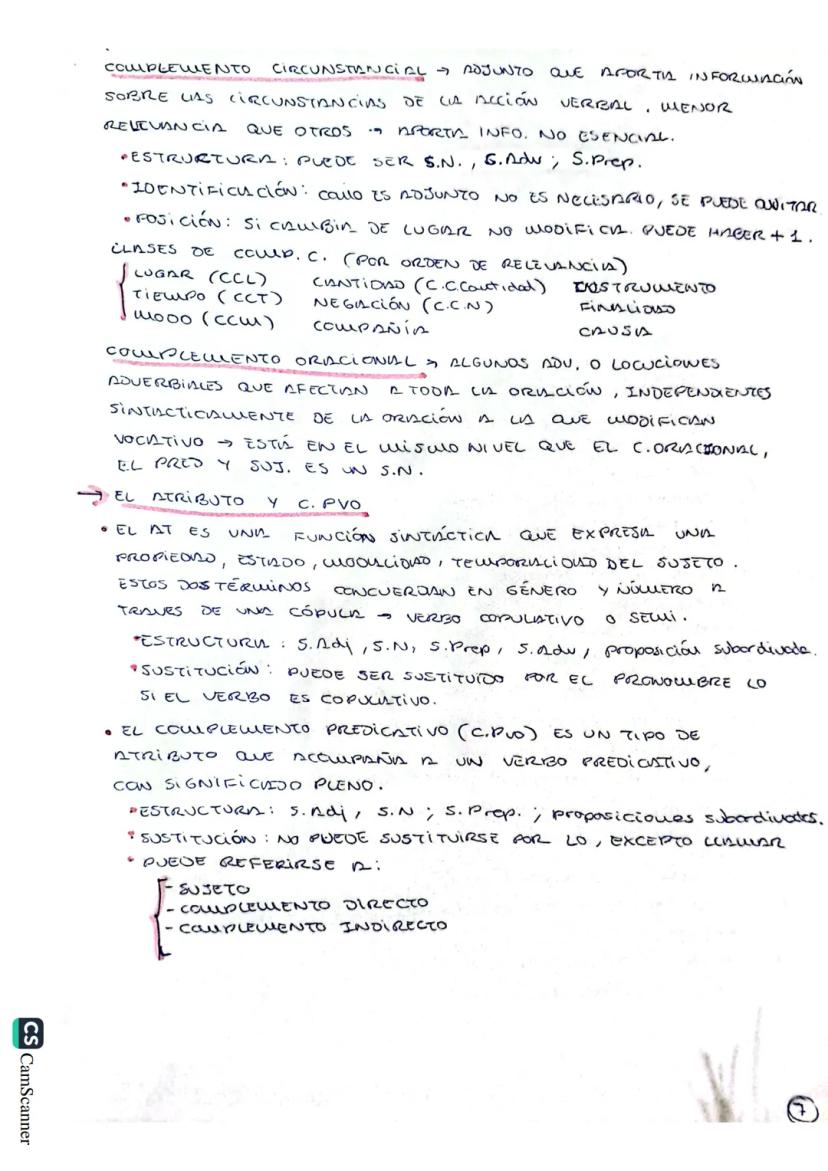 COMPLEMENTO CIRCUNSTANCIAL → ADJUNTO QUE APORTA INFORMACIÓN
SOBRE LAS CIRCUNSTANCIAS DE LA ACCIÓN VERBAL. MENOR
RELEVANCIA QUE OTROS → APORTA INFO. NO ESENCIAL.
• ESTRUCTURA: PUEDE SER S.N., S.Adv; S.Prep.
• IDENTIFICACIÓN: COMO ES ADJUNTO NO ES NECESARIO, SE PUEDE QUITAR
• POSICIÓN: SI CAMBIA DE LUGAR NO MODIFICA. PUEDE HABER + 1.
CLASES DE COMP. C. (POR ORDEN DE RELEVANCIA)
LUGAR (CCL) CANTIDAD (C.C.Cantidad) INSTRUMENTO
TIEMPO (CCT) NEGACIÓN (C.C.N) FINALIDAD
MODO (CCM) COMPAÑÍA CAUSA
COMPLEMENTO ORACIONAL → ALGUNOS ADV. O LOCUCIONES
ADVERBIALES QUE AFECTAN A TODA LA ORACIÓN, INDEPENDIENTES
SINTACTICAMENTE DE LA ORACIÓN A LA QUE MODIFICAN
VOCATIVO → ESTÁ EN EL MISMO NIVEL QUE EL C. ORACIONAL,
EL PRED Y SUJ. ES UN S.N.
→ EL ATRIBUTO Y C. PVO
• EL AT ES UNA FUNCIÓN SINTÁCTICA QUE EXPRESA UNA
PROPIEDAD, ESTADO, MODALIDAD, TEMPORALIDAD DEL SUJETO.
ESTOS DOS TÉRMINOS CONCUERDAN EN GÉNERO Y NÚMERO A
TRAVES DE UNA CÓPULA → VERBO COPULATIVO O SEMI.
• ESTRUCTURA: S.Adj, S.N, S.Prep, S.Adv, proposición subordinada.
• SUSTITUCIÓN: PUEDE SER SUSTITUIDO POR EL PRONOMBRE LO
SI EL VERBO ES COPULATIVO.
• EL COMPLEMENTO PREDICATIVO (C.Pvo) ES UN TIPO DE
ATRIBUTO QUE ACOMPAÑA A UN VERBO PREDICATIVO,
CON SIGNIFICADO PLENO.
• ESTRUCTURA: S.Adj, S.N; S.Prep.; proposiciones subordinadas.
• SUSTITUCIÓN: NO PUEDE SUSTITUIRSE POR LO, EXCEPTO LLAMAR
• PUEDE REFERIRSE A:
- SUJETO
- COMPLEMENTO DIRECTO
- COMPLEMENTO INDIRECTO
CS CamScanner
7